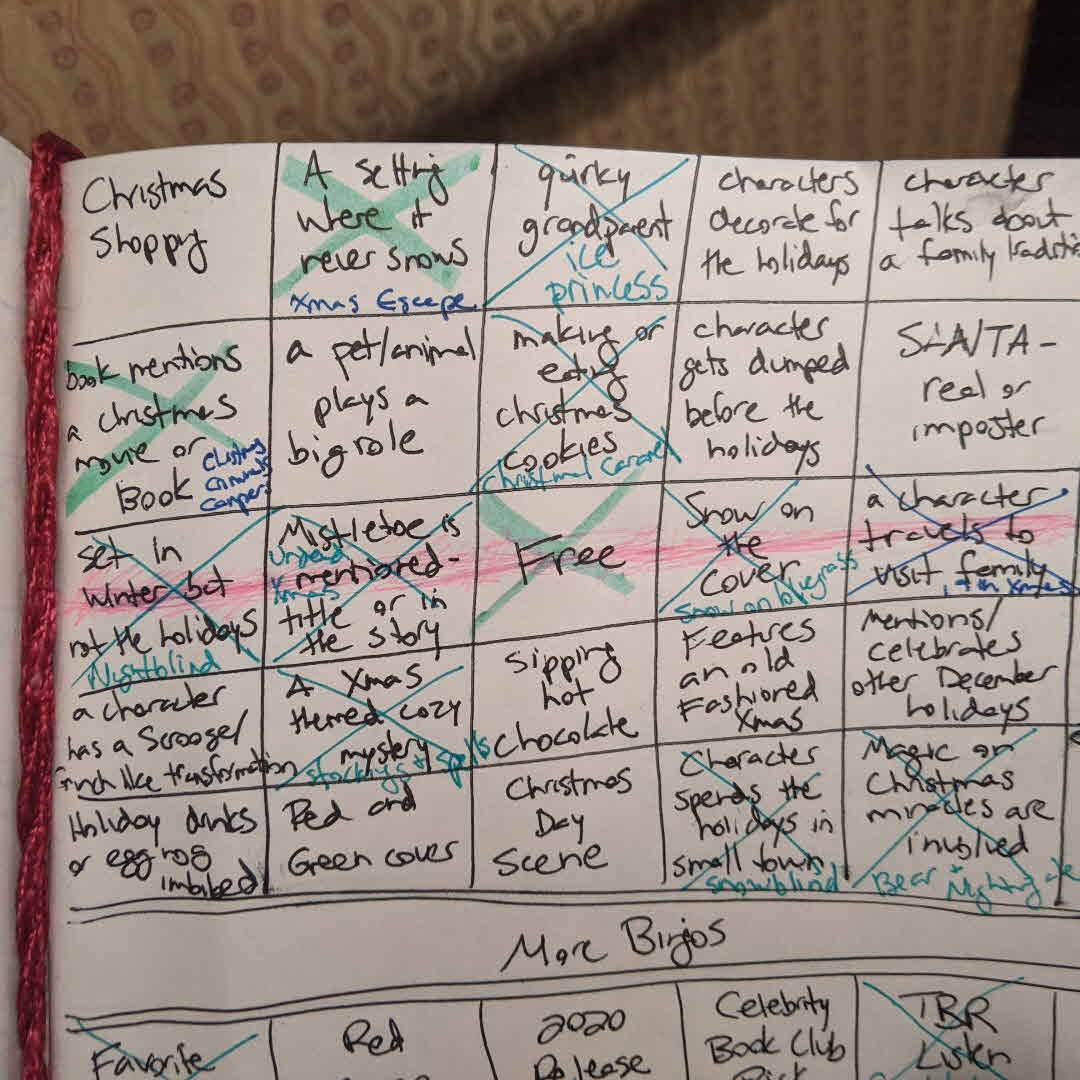 Christmas
Shoppy
A setting
where it
never snows
Xmas Escape
quirky
grandparent
ice
princess
characters
decorate for
the holidays
character
talks about
a family
book mentions
a christmas
movie or
Book
christmas
a pet/animal
plays a
big role
making or
eating
christmas
cookies
Christmas Caramel
character
gets dumped
before the
holidays
SANTA -
real or
imposter
set in
winter but
not the holidays
Nightblind
Mistletoe is
Undead
Xmas
mentioned -
title or in
the story
Free
Snow on
the
cover
Snow on bluegrass
a character
travels to
visit family
Xmas
a character
has a Scrooge/
Grinch like transformation
A Xmas
themed cozy
mystery
stockings + spells
Sipping
hot
chocolate
Features
an old
Fashioned
Xmas
Mentions/
celebrates
other December
holidays
Holiday drinks
or egg nog
imbibed
Red and
Green cover
Christmas
Day
Scene
Character
spends the
holidays in
small town
Snowblind
Magic or
Christmas
miracles are
involved
Bear + Nightingale
More Bingos
Favorite
Red
2020
Release
Celebrity
Book Club
Pick
TBR
Listen